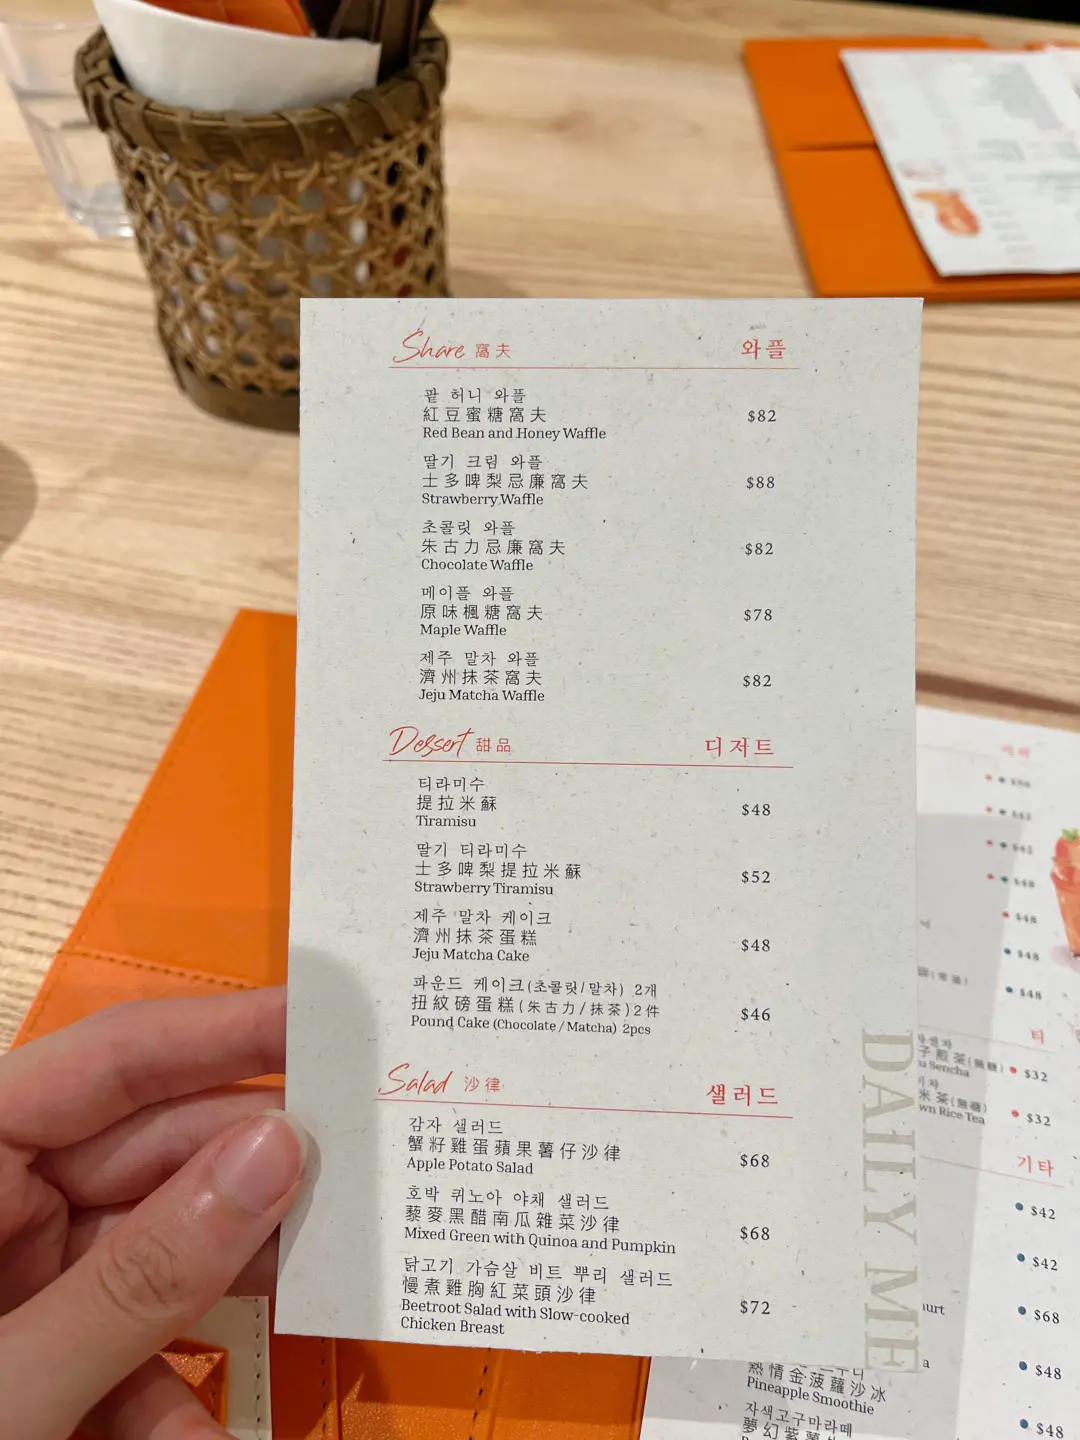 Share 窩夫 와플
팥 허니 와플
紅豆蜜糖窩夫 $82
Red Bean and Honey Waffle
딸기 크림 와플
士多啤梨忌廉窩夫 $88
Strawberry Waffle
초콜릿 와플
朱古力忌廉窩夫 $82
Chocolate Waffle
메이플 와플
原味楓糖窩夫 $78
Maple Waffle
제주 말차 와플
濟州抹茶窩夫 $82
Jeju Matcha Waffle
Dessert 甜品 디저트
티라미수
提拉米蘇 $48
Tiramisu
딸기 티라미수
士多啤梨提拉米蘇 $52
Strawberry Tiramisu
제주 말차 케이크
濟州抹茶蛋糕 $48
Jeju Matcha Cake
파운드 케이크(초콜릿/말차) 2개
扭紋磅蛋糕(朱古力/抹茶)2件 $46
Pound Cake (Chocolate / Matcha) 2pcs
Salad 沙律 샐러드
감자 샐러드
蟹籽雞蛋蘋果薯仔沙律 $68
Apple Potato Salad
호박 퀴노아 야채 샐러드
藜麥黑醋南瓜雜菜沙律 $68
Mixed Green with Quinoa and Pumpkin
닭고기 가슴살 비트 뿌리 샐러드
慢煮雞胸紅菜頭沙律 $72
Beetroot Salad with Slow-cooked
Chicken Breast
DAILY ME
커피
$42
$48
$48
$48
$48
티
子煎茶(無糖) $32
Sencha
米茶(無糖) $32
wn Rice Tea
기타
$42
$42
$68
$48
熱情金菠蘿沙冰
Pineapple Smoothie
자색고구마라떼 $48
夢幻紫薯